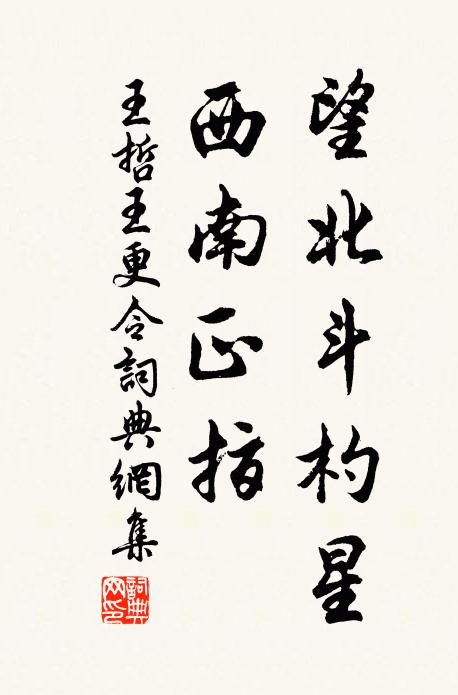 望北斗杓星
西南正指
王哲王更令詞典網集
詞典
网印